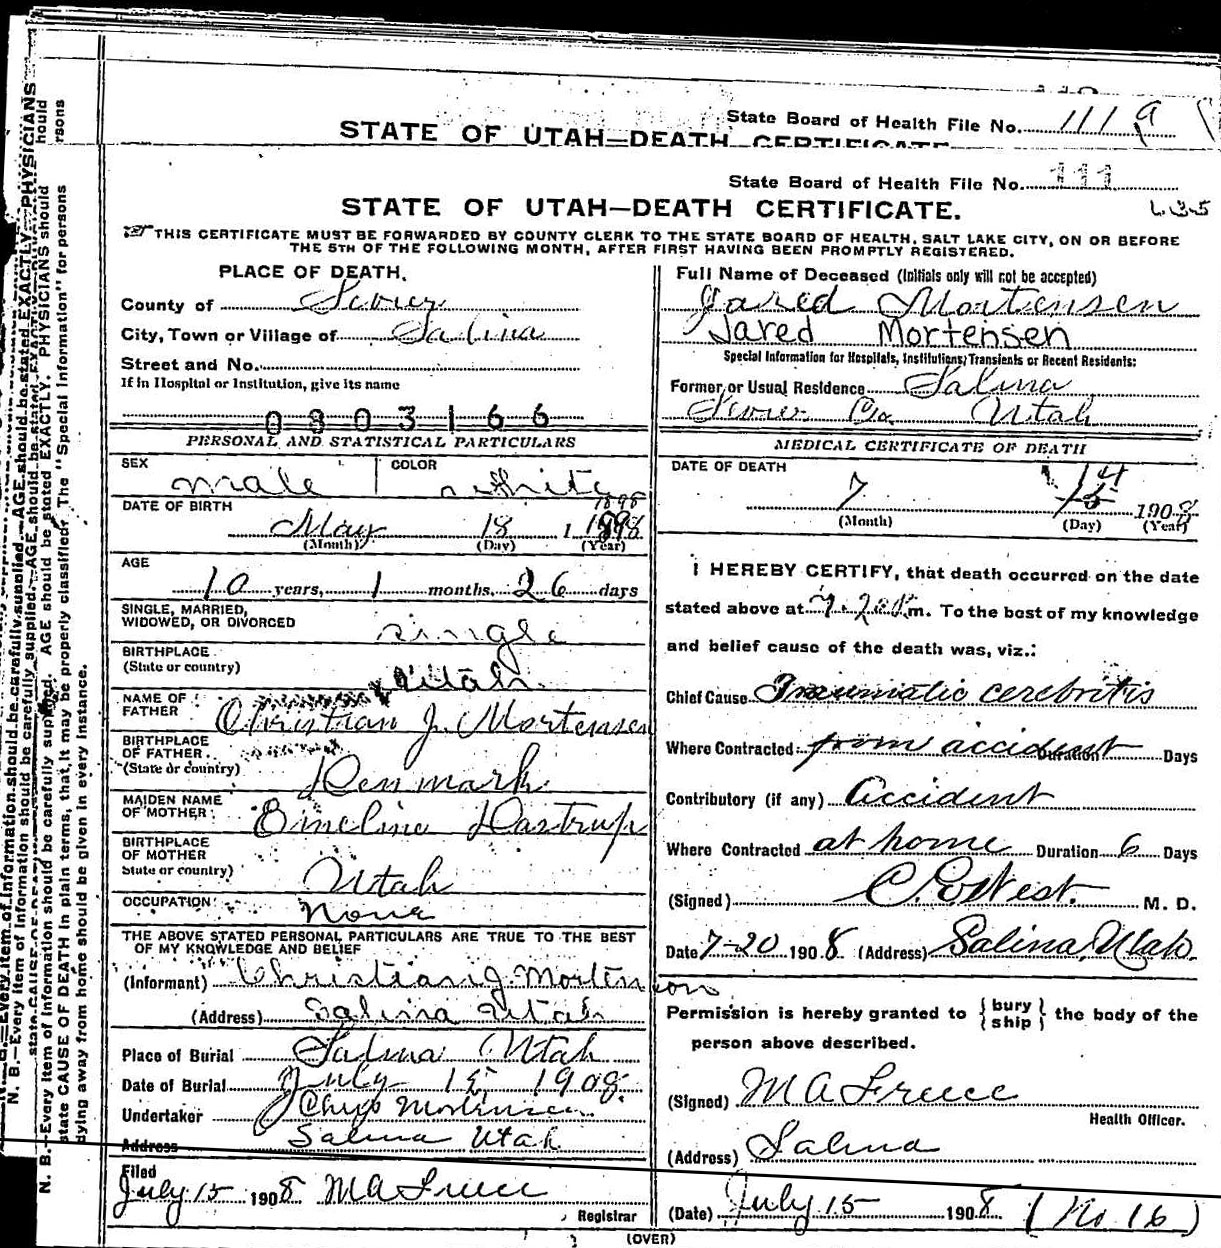 State Board of Health File No. 111 a
STATE OF UTAH—DEATH CERTIFICATE
State Board of Health File No. 111
STATE OF UTAH—DEATH CERTIFICATE.
135
THIS CERTIFICATE MUST BE FORWARDED BY COUNTY CLERK TO THE STATE BOARD OF HEALTH, SALT LAKE CITY, ON OR BEFORE
THE 5TH OF THE FOLLOWING MONTH, AFTER FIRST HAVING BEEN PROMPTLY REGISTERED.
PLACE OF DEATH.
County of Sevier
City, Town or Village of Salina
Street and No.
If in Hospital or Institution, give its name
0803166
PERSONAL AND STATISTICAL PARTICULARS
SEX male
COLOR white
DATE OF BIRTH May 18 1898 1898
(Month) (Day) (Year)
AGE
10 years, 1 months, 26 days
SINGLE, MARRIED,
WIDOWED, OR DIVORCED single
BIRTHPLACE
(State or country) Utah
NAME OF
FATHER Christian J. Mortensen
BIRTHPLACE
OF FATHER
(State or country) Denmark
MAIDEN NAME
OF MOTHER Emeline Dastrup
BIRTHPLACE
OF MOTHER
State or country) Utah
OCCUPATION None
THE ABOVE STATED PERSONAL PARTICULARS ARE TRUE TO THE BEST
OF MY KNOWLEDGE AND BELIEF
(Informant) Christian J. Mortenson
(Address) Salina Utah
Place of Burial Salina Utah
Date of Burial July 15 1908
Undertaker Chris Mortensen
Address Salina Utah
Filed
July 15 1908 M A
Registrar
Full Name of Deceased (Initials only will not be accepted)
Jared Mortensen
Jared Mortensen
Special Information for Hospitals, Institutions, Transients or Recent Residents:
Former or Usual Residence Salina
Sevier Co. Utah
MEDICAL CERTIFICATE OF DEATH
DATE OF DEATH
7 14 15 1908
(Month) (Day) (Year)
I HEREBY CERTIFY, that death occurred on the date
stated above at m. To the best of my knowledge
and belief cause of the death was, viz.:
Chief Cause Traumatic cerebritis
Where Contracted from accident Duration Days
Contributory (if any) Accident
Where Contracted at home Duration 6 Days
(Signed) West. M. D.
Date 7-20 1908 (Address) Salina, Utah.
Permission is hereby granted to { bury ship } the body of the
person above described.
(Signed) M A
Health Officer.
(Address) Salina
(Date) July 15 1908 (No 16)
(OVER)
N. B.—Every item of information should be carefully supplied. AGE should be stated EXACTLY. PHYSICIANS should
state CAUSE OF DEATH in plain terms, that it may be properly classified. The "Special Information" for persons
dying away from home should be given in every instance.